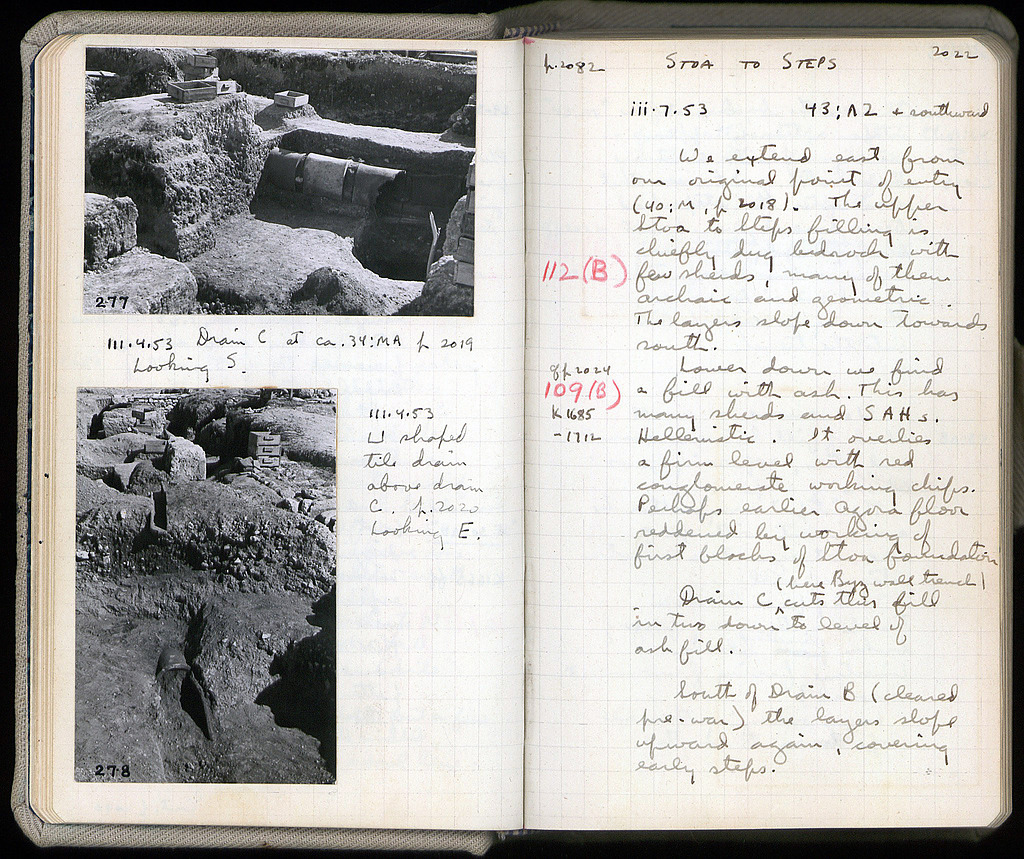 277
III.4.53 Drain C at ca. 34:MA p 2019
Looking S.
III.4.53
U shaped
tile drain
above drain
C. p.2020
Looking E.
278
p.2082 STOA TO STEPS 2022
iii.7.53 43:ΛZ + southward
We extend east from
our original point of entry
(40:M, p 2018). The upper
Stoa to Steps filling is
chiefly dug bedrock with
112(B) few sherds, many of them
archaic and geometric.
The layers slope down towards
south.
cf p 2024 Lower down we find
109(B) a fill with ash. This has
K 1685 many sherds and SAHs.
-1712 Hellenistic. It overlies
a firm level with red
conglomerate working chips.
Perhaps earlier agora floor
reddened by working of
first blocks of Stoa foundation
(here Byz wall trench)
Drain C cuts this fill
in two down to level of
ash fill.
South of Drain B (cleared
pre-war) the layers slope
upward again, covering
early steps.